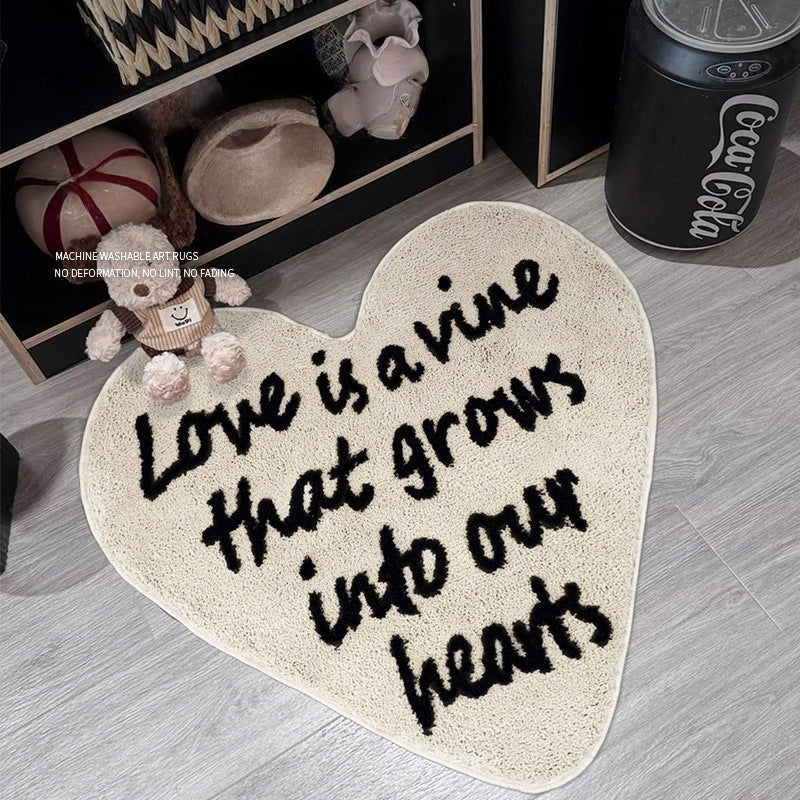 MACHINE WASHABLE ART RUGS
NO DEFORMATION, NO LINT, NO FADING
Love is a vine
that grows
into our
hearts
Coca-Cola